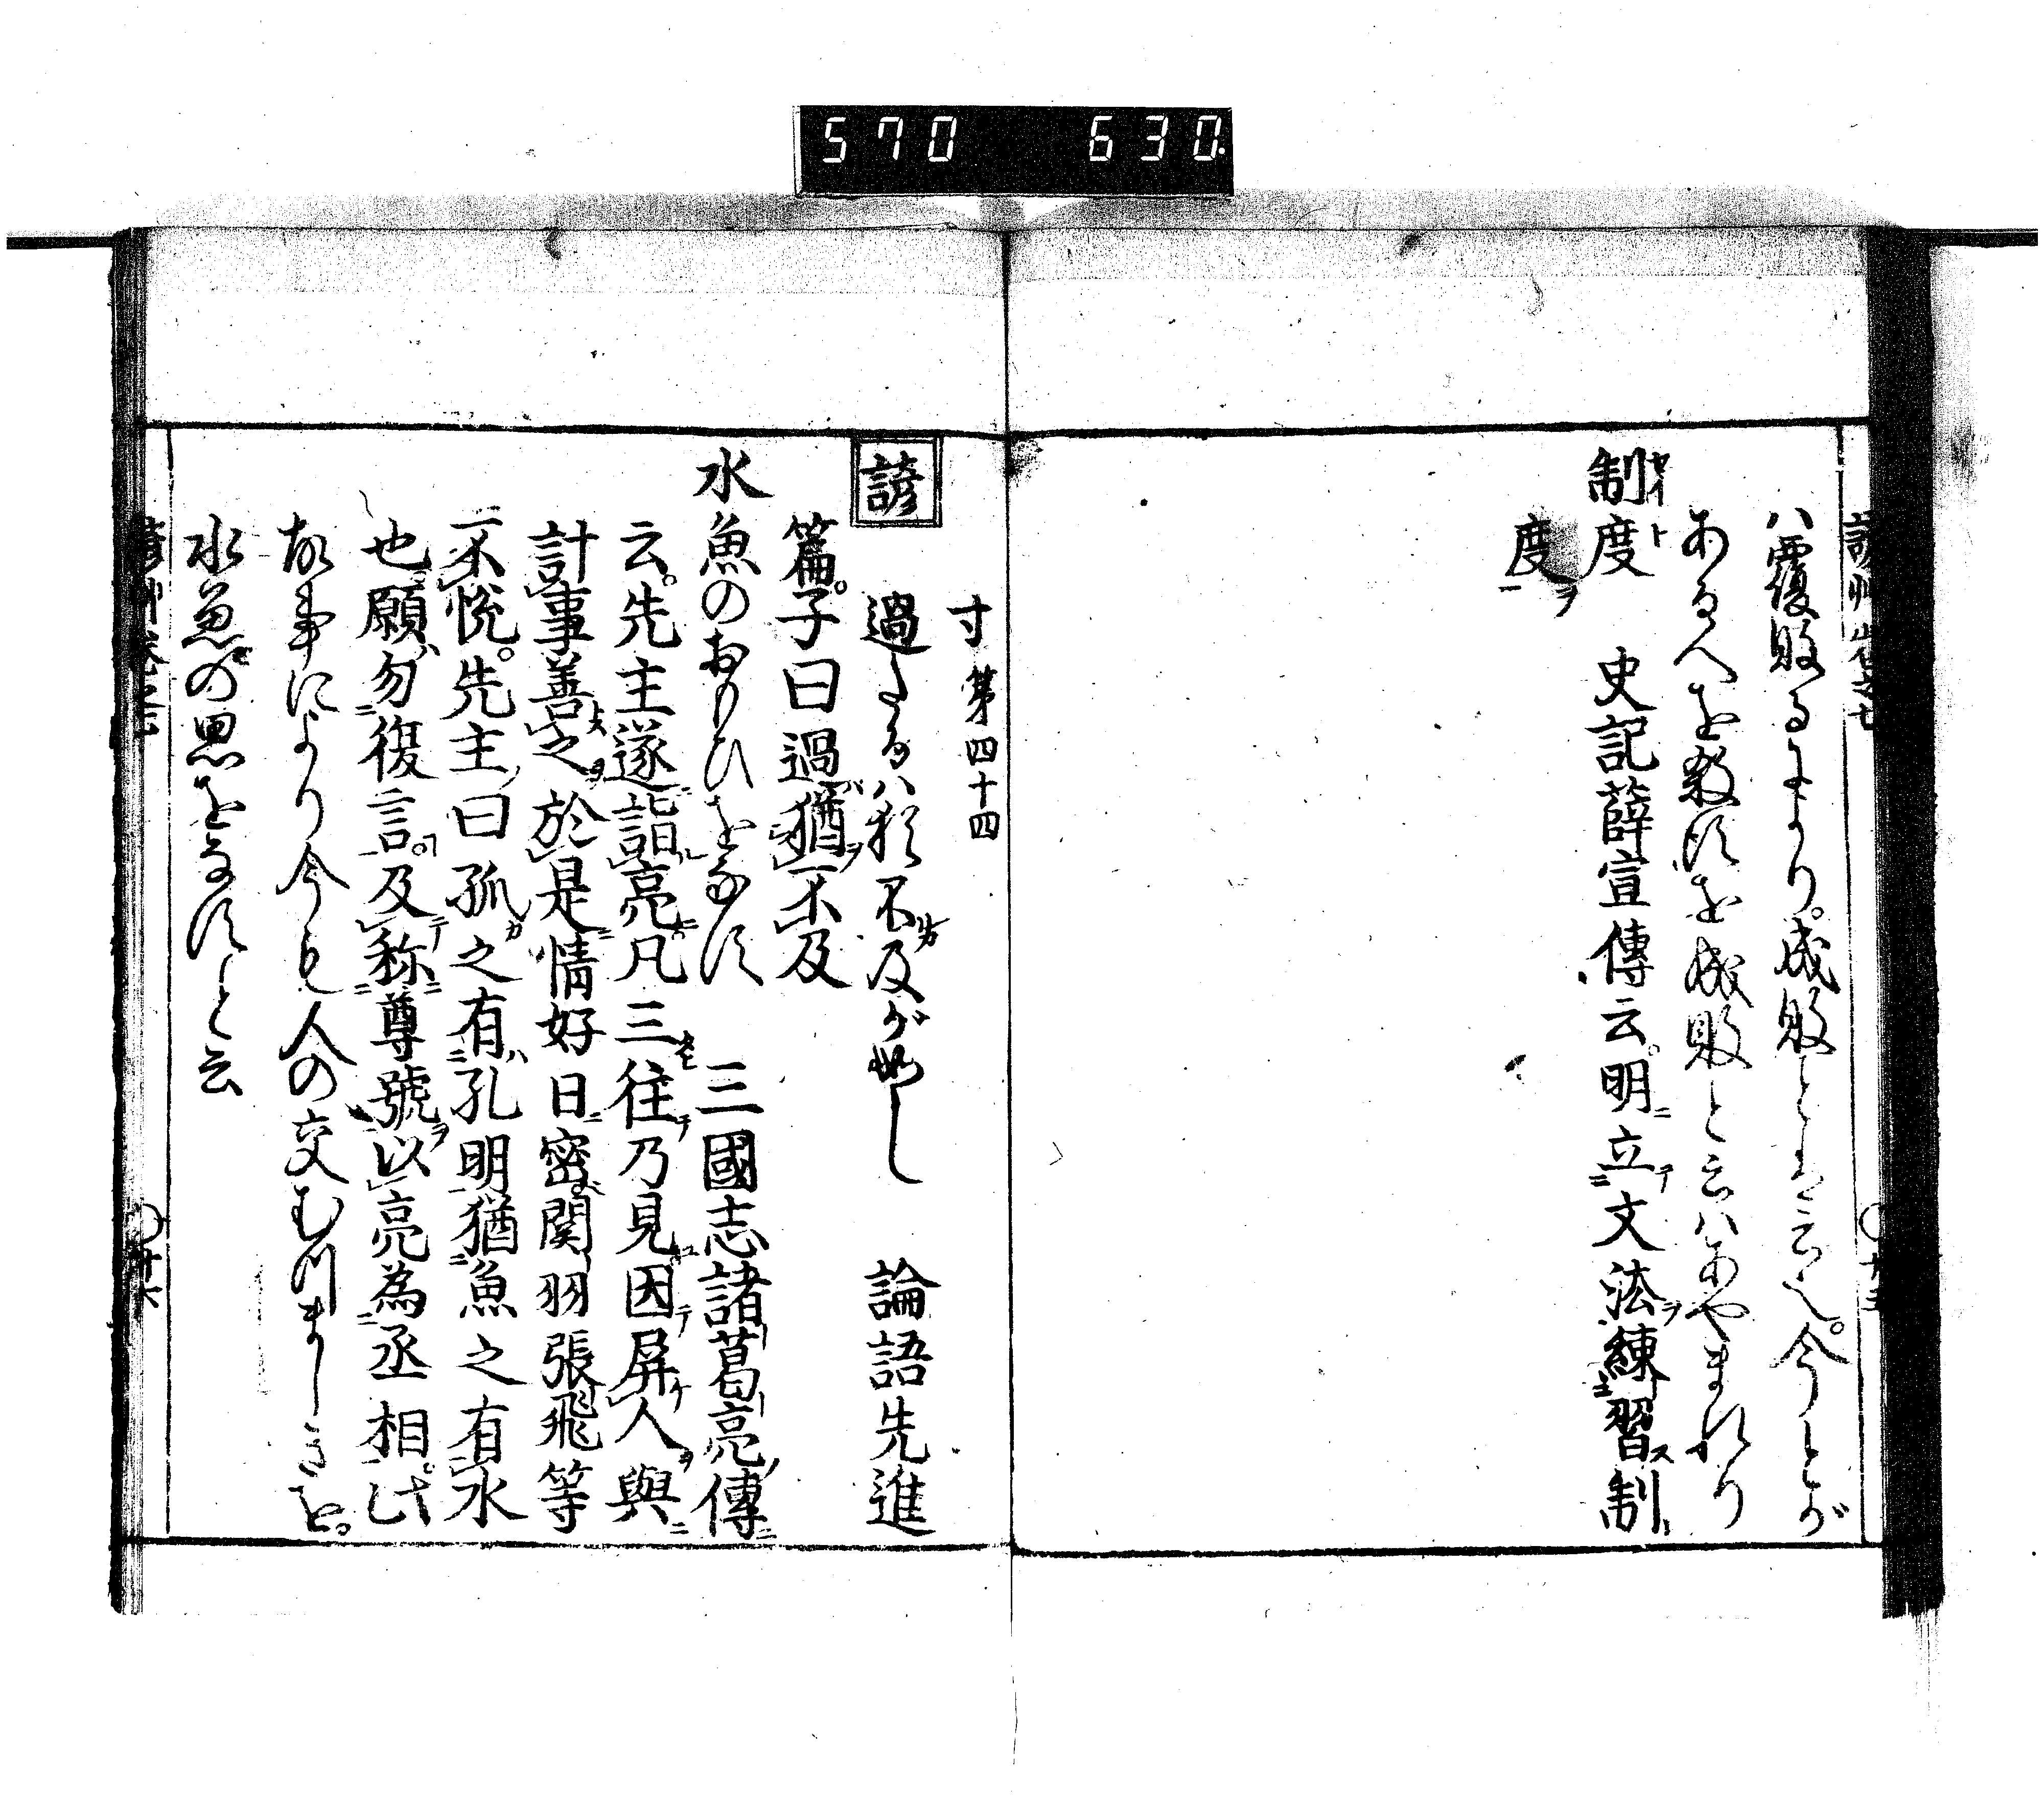 570 630.
ハ覆敗るによりて。成敗とは云也。今とが
ある人を殺すを成敗と云ハあやまれり
制度 史記薛宣傳云。明ニ立テ文法ヲ練習ス制
度ヲ
寸 第四十四
諺 過たるハ猶不及が如し 論語先進
篇。子曰過猶不及
水魚のおもひをなす 三國志諸葛亮傳
云。先主遂詣亮凡三往乃見因屏人與
計事善之於是情好日密関羽張飛等
不悦。先主曰孤之有孔明猶魚之有水
也願勿復言。及称尊號以亮為丞相。此
故事により今も人の交むつましきを。
水魚の思をなすと云